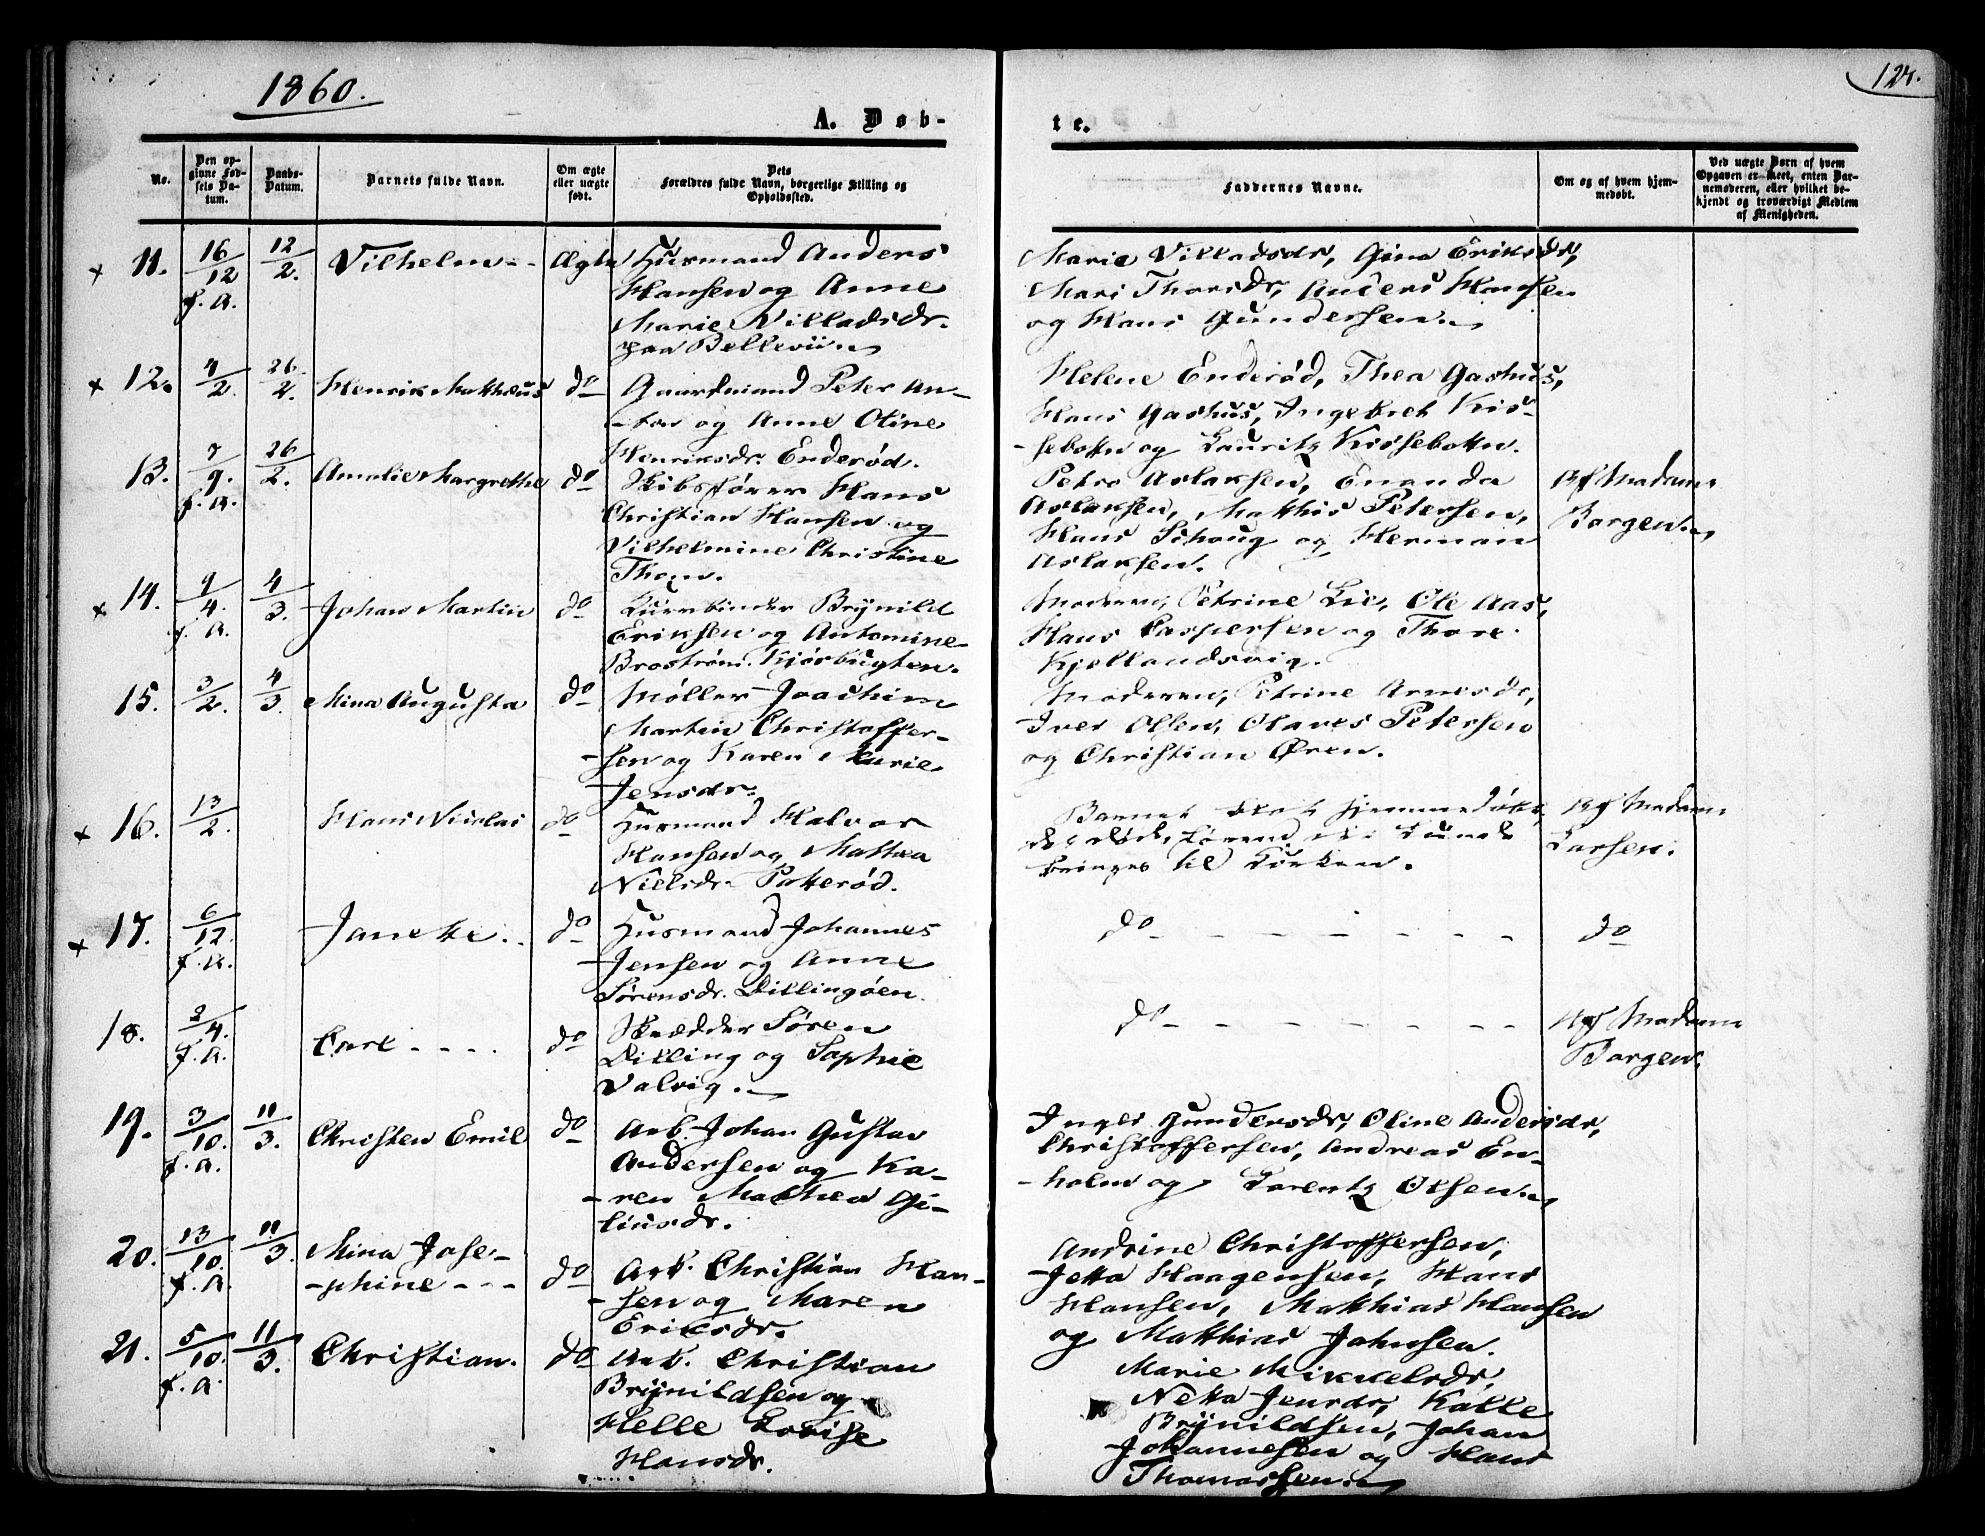 1860.
124.
A. Døb-
te.
No.
Den op-
givne Fød-
sels Da-
tum.
Daabs-
Datum.
Barnets fulde Navn.
Om ægte
eller uægte
født.
Dets
Forældres fulde Navn, borgerlige Stilling og
Opholdssted.
Faddernes Navne.
Om og af hvem hjem-
medøbt.
Ved uægte Børn af hvem
Opgaven er skeet, enten Bar-
nemoderen, eller hvilket be-
kjendt og troværdigt Medlem
af Menigheden.
x 11. 16/12 f.a. 12/2. Vilhelm -- Ægte Husmand Anders
Hansen og Anne
Marie Villadsdr.
paa Bellevü.
Marie Villadsdr, Gina Eriksdr,
Mari Thorsdr, Anders Hansen
og Hans Gundersen.
x 12. 4/2. 26/2. Henrik Matthæus do Gaardmand Peter An-
-ton og Anne Oline
Henriksdr. Enderød.
Helene Enderød, Thea Gashus,
Hans Gashus, Ingebret Kris-
-sebotn og Lauritz Krossebotn.
13. 7/9. f.a. 26/2. Amalie Margrethe do Skibsfører Hans
Christian Hansen og
Vilhelmine Christine
Thom.
Petra Aslaksen, Enanda
Aslaksen, Matthis Petersen,
Hans Schoug og Herman
Aslaksen.
Af Madam
Borgen
x 14. 9/4. f.a. 4/3. Johan Martin do Buntbinder Brÿnild
Eriksen og Antomine
Brostrøm. Kjøsbugten.
Moderen, Petrine Lie, Ole Aas,
Hans Caspersen og Thore
Kjellandsvig.
15. 3/2. 4/3. Mina Augusta do Møller Joachim
Martin Christoffer-
-sen og Karen Marie
Jensdr.
Moderen, Petrine Arnesdr,
Iver Olsen, Olaves Petersen
og Christian Øren.
x 16. 13/2. Hans Nicolai do Husmand Halvor
Hansen og Mathea
Nielsdr. Patterød.
Barnet blev hjemmedøbt,
og døde, førend det kunde
bringes til Kirken.
Af Madam
Larsen.
x 17. 6/12. f.a. Janette.. do Husmand Johannes
Jensen og Anne
Sørensdr. Dillingøen.
do - - - - - - -
do
18. 2/4. f.a. Carl - - - - do Skrædder Søren
Dilling og Sophie
Valvig.
do - - - - - - -
Af Madam
Borgen.
19. 3/10. f.a. 11/3. Christen Emil do Arb. Johan Gustav
Andersen og Ka-
-ren Mathea Gi-
liusdr.
Inger Gundersdr, Oline Andersdr,
Christoffersen, Andreas En-
-holm og Lorentz Olsen.
20. 13/10. f.a. 11/3. Mina Jose-
-phine - - - do Arb. Christian Han-
-sen og Maren
Eriksdr.
Andrine Christoffersen,
Jetta Haagensen, Hans
Hansen, Matthias Hansen
og Matthias Johnsen.
21. 5/10. f.a. 11/3. Christian. do Arb. Christian
Brÿnildsen og
Helle Lovise
Hansdr.
Marie Mikkelsdr,
Netta Jensdr, Kalle
Brÿnildsen, Johan
Johannesen og Hans
Thomassen.